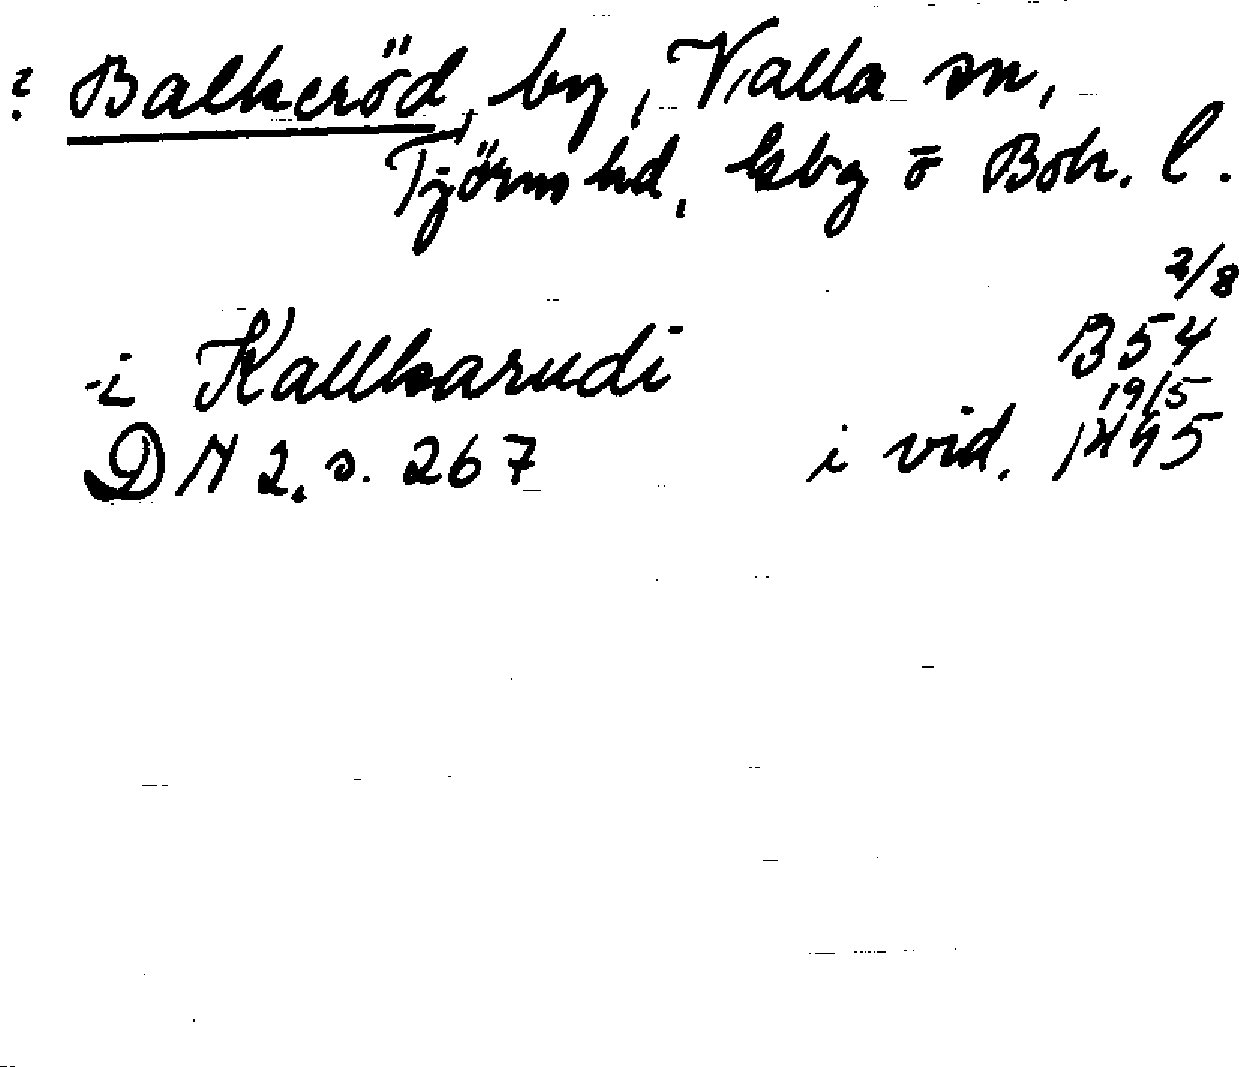 ? Balkeröd, by, Valla sn,
Tjörns hd, Gbg o Boh. l.
2/8
i Kallkarudi B 54
19/5
DN 2, s. 267 i vid. 1445